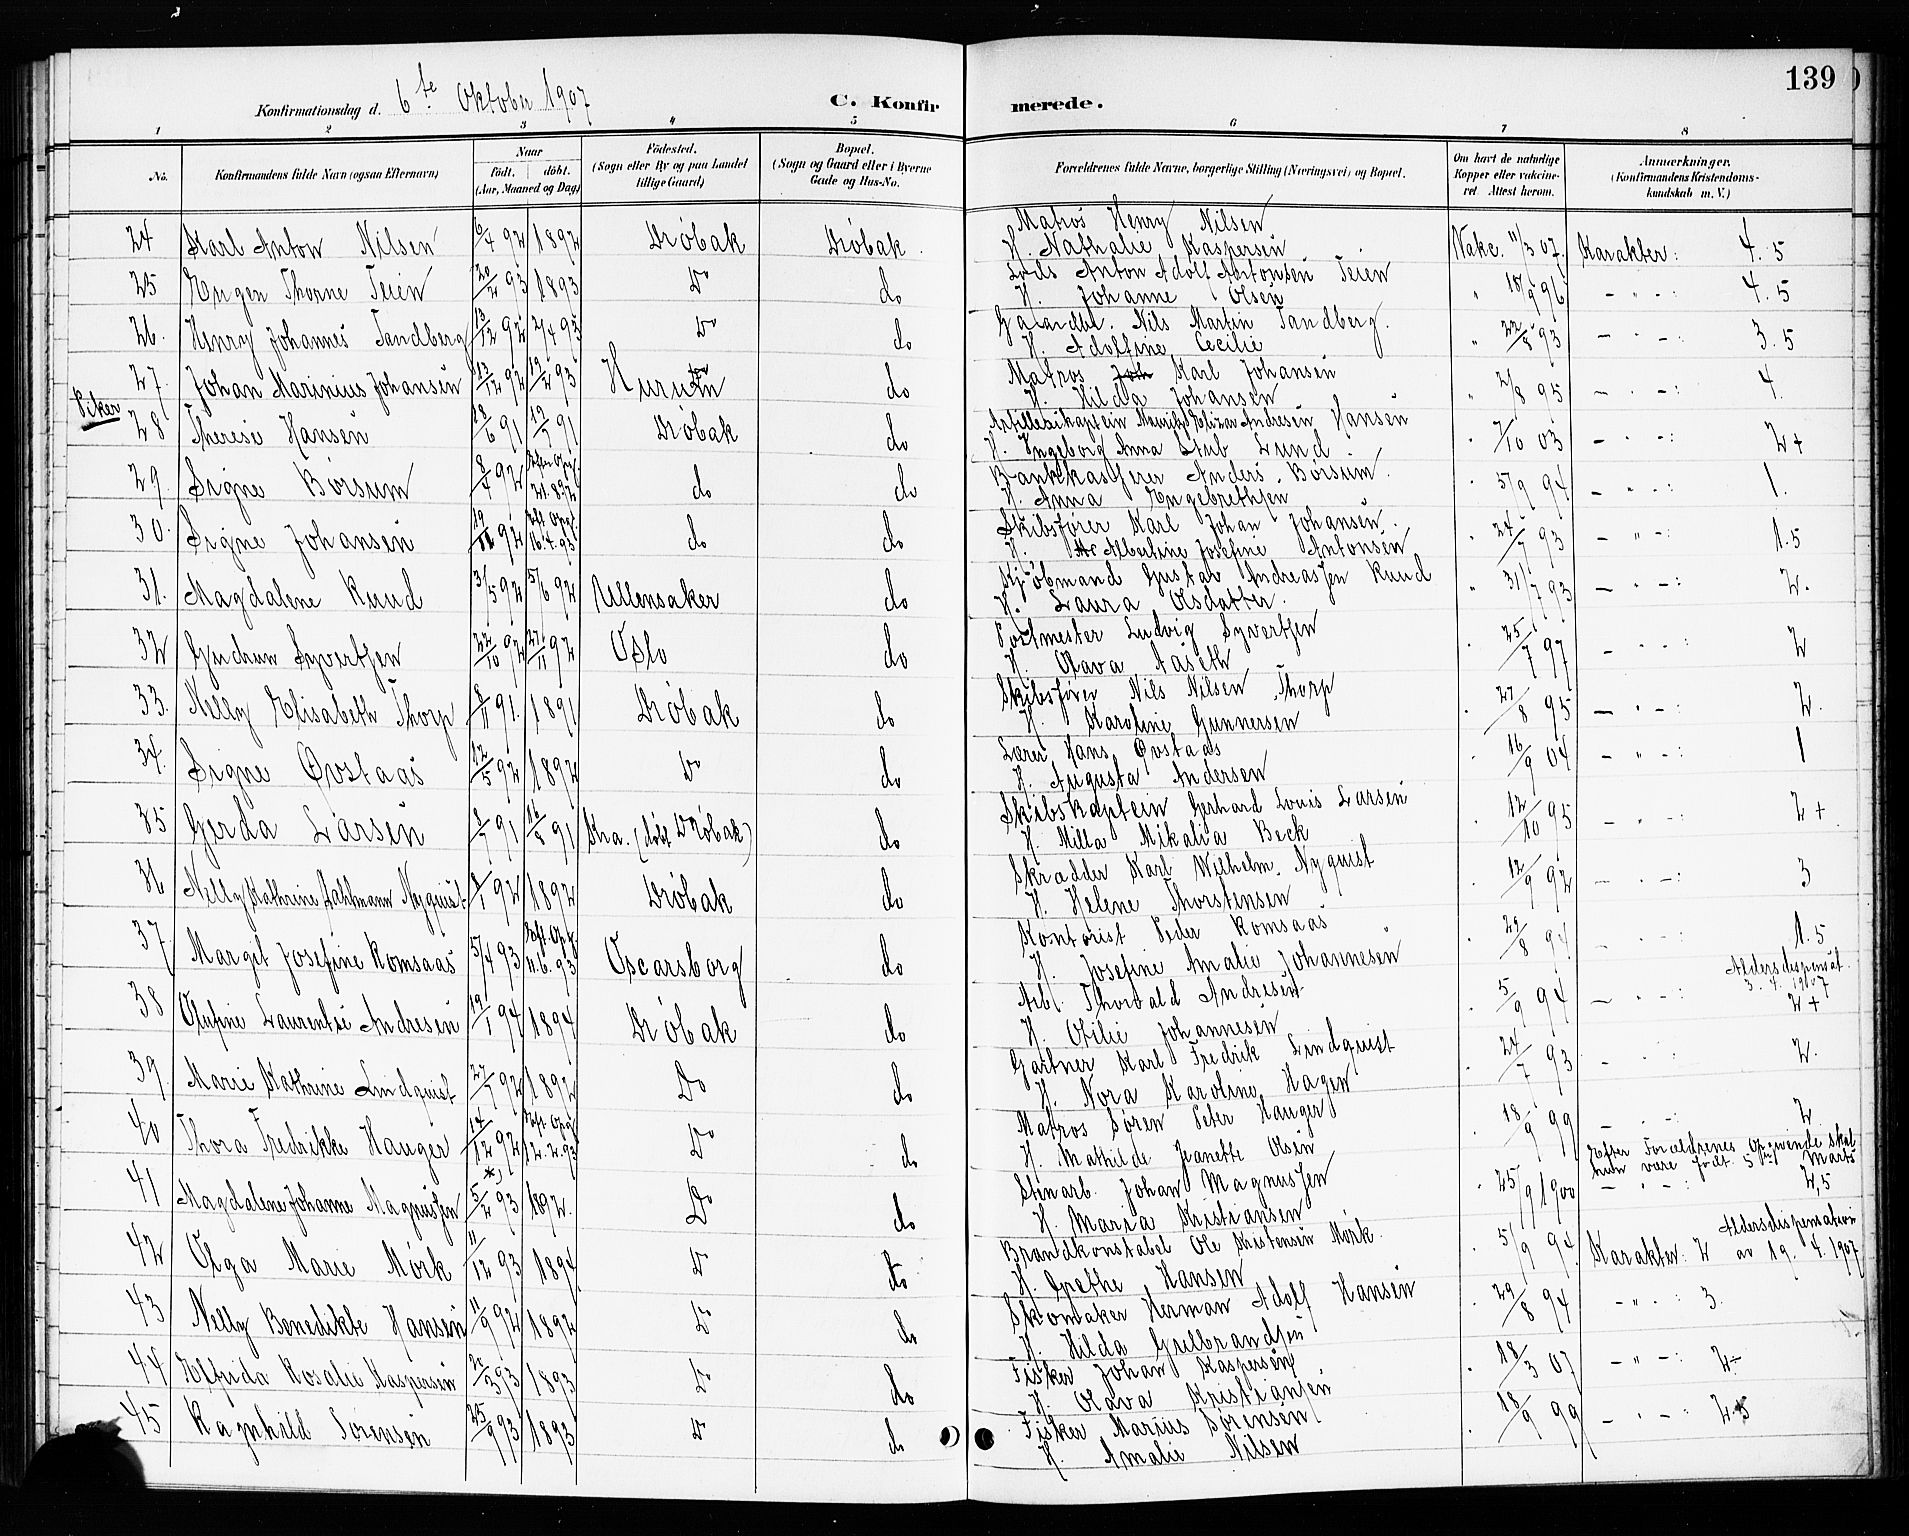 139
Konfirmationsdag d. 6te Oktober 1907 C. Konfirmerede.
1 2 3 4 5 6 7 8
No. Konfirmandens fulde Navn (ogsaa Efternavn) Naar födt. döbt. (Aar, Maaned og Dag) Födested. (Sogn eller By og paa Landet tillige Gaard) Bopæl. (Sogn og Gaard eller i Byerne Gade og Hus-No. Forældrenes fulde Navne, borgerlige Stilling (Næringsvei) og Bopæl. Om havt de naturlige Kopper eller vakcineret. Attest herom. Anmærkninger. (Konfirmandens Kristendomskundskab m. V.)
24 Karl Anton Nilsen 6/4 92 1892 Drøbak Drøbak. Matros Henry Nilsen H. Nathalie Kaspersen Vakc. 11/3 07. Karakter: 4.5
25 Eugen Thorne Teien 20/2 93 1893 Do do Lods Anton Adolf Antonsen Teien H. Johanne Olsen " 18/9 96 - " - : 4.5
26. Henry Johannes Tandberg 13/12 92 2/4 93 Do do Gaardbr. Nils Martin Tandberg. H. Adolfine Cecilie " 22/8 93 - " - : 3.5
27. Johan Marinius Johansen 13/12 92 12/2 93 Hurum do Matros Karl Johansen H. Hilda Johansen " 2/8 95 - " - : 4.
Piker
28 Therese Hansen 18/6 91 12/7 91 Drøbak do Artillerikaptein Mauritz Elizar Andresen Hansen H. Ingeborg Anna Stub Lund. " 7/10 03 - " - : 2+
29. Signe Børsum 8/4 92 Efter Opg. 21.8.92 do do Bankkasserer Anders Børsum. H. Anna Engebrethsen " 5/9 94 - " - : 1.
30. Signe Johansen 19/11 92 Eft. Opg. 16.4.93 do do Skibsfører Karl Johan Johansen. H. Albertine Josefine Antonsen " 24/7 93 - " - : 1.5
31. Magdalene Ruud 3/5 92 5/6 92 Ullensaker do Kjøbmand Gustav Andreassen Ruud H. Laura Olsdatter. " 31/7 93 - " - : 2.
32 Gudrun Syvertsen 22/10 92 27/11 92 Oslo do Postmester Ludvig Syvertsen H. Olava Aaseth " 25/7 97 - " - : 2
33. Nelly Elisabeth Thorp 8/11 91. 1891 Drøbak do Skibsfører Nils Nilsen Thorp H. Karoline Gunnersen " 27/8 95 - " - : 2.
34. Signe Øvstaas 12/5 92 1892 Do do Lærer Hans Øvstaas H. Augusta Andersen " 16/9 04 - " - : 1
35 Gerda Larsen 8/7 91 16/8 91 Kra. (døbt Drøbak) do Skibskaptein Gerhard Louis Larsen H. Milla Mikalia Beck " 12/10 95 - " - : 2+
36 Nelly Kathrine Dahlmann Nyquist 8/1 92 1892 Drøbak do Skrædder Karl Wilhelm Nyquist H. Helene Thorstensen " 12/9 92 - " - : 3
37. Margit Josefine Romsaas 5/4 93 Eft. Opg. 11.6.93 Oscarsborg do Kontorist Peder Romsaas H. Josefine Amalie Johannesen " 29/8 94 - " - : 1.5
38 Olufine Laurentse Andresen 19/1 94 1894 Drøbak do Arb. Thorvald Andresen H. Otilie Johannesen " 5/9 94 - " - : Aldersdispensat. 3.4.1907 2+
39. Marie Kathrine Lindquist 27/7 92 1892 Do do Gartner Karl Fredrik Lindquist H. Nora Karoline Hagen " 24/7 93 - " - : 2.
40 Thora Fredrikke Hauger 14/12 92 Eft. Opg. 12.2.93 Do do Matros Søren Peter Hauger H. Mathilde Jeanette Olsen " 18/9 99 - " - : 2
41 Magdalene Johanne Magnussen *) 5/2 93 1892. Do do Stenarb. Johan Magnussen H. Maria Kristiansen " 25/9 1900 Efter Forældrenes Opgivende skal hun være født 5te Marts - " - : 2,5
42 Olga Marie Mørk 11/12 93 1894. Do do Brandkonstabel Ole Kristensen Mørk. H. Grethe Hansen " 5/9 94. Karakter: 2 Aldersdispensation av 19.4.1907
43 Nelly Benedikte Hansen 11/9 92 1892 Do do Skomaker Herman Adolf Hansen H. Hilda Gulbrandsen " 29/8 94 - " - : 3.
44 Elfrida Rosalie Kaspersen 20/3 93 1893 Do do Fisker Johan Kaspersen H. Olava Kristiansen " 18/3 07 - " - : 2÷
45 Ragnhild Sørensen 25/9 93 1893 Do do Fisker Marius Sørensen H. Amalie Nilsen " 18/9 99 - " - : 2.5